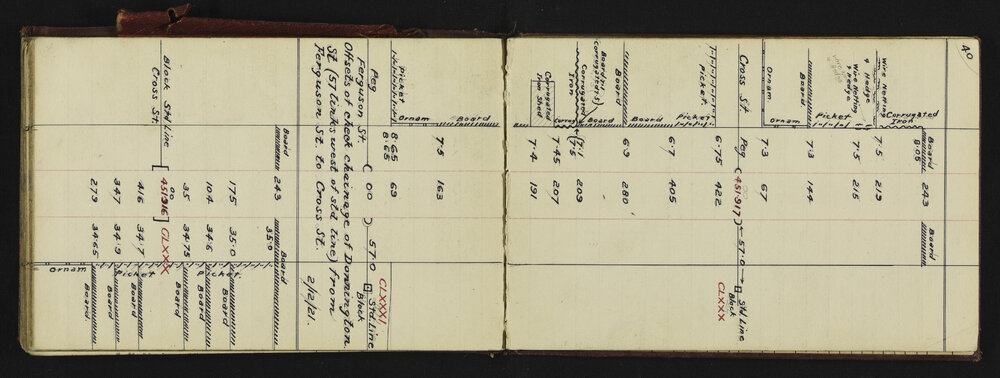 40
Board 8·05 243 Board
Corrugated Iron
Wire Netting & Hedge 7·5 219
Wire Netting & Hedge 7·5 215
Picket
Board 7·3 144
Ornam
Ornam 7·3 67
Cross St. Peg (451917) 57·0 Std Line Block CLXXX
Picket 6·75 422
Picket
6·7 405
Board 6·9 280
Board
Corrugated Iron 7·5 (7·1) 209
Board
7·45 207
Corrugated
Corrugated Iron Shed 7·4 191
B
Board
7·5 163
Ornam
Picket 8·65 69
8·65
CLXXXI
Peg Ferguson St. (000) 57·0 Block Std. Line
Offsets of check chainage of Donnington
St (57 links west of std line) from
Ferguson St. to Cross St.
2/2/21.
Board 243 35·0 Board
175 35·0 Board
104 34·6 Picket Board
35 34·75 Board
Block Std Line Cross St. [451916] CLXXX
00
416 34·7 Picket Board
347 34·9 Board
279 34·65 Board
Ornam